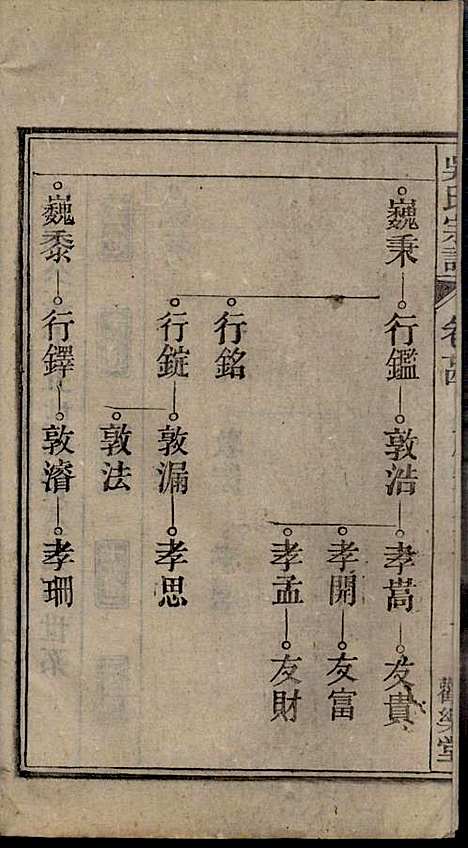 吳氏宗譜
觀樂堂
巍秉 行鑑 敦浩 孝嵩 友貴
孝開 友富
孝孟 友財
行銘
行錠 敦漏 孝思
敦法
巍黍 行鐸 敦濬 孝珊